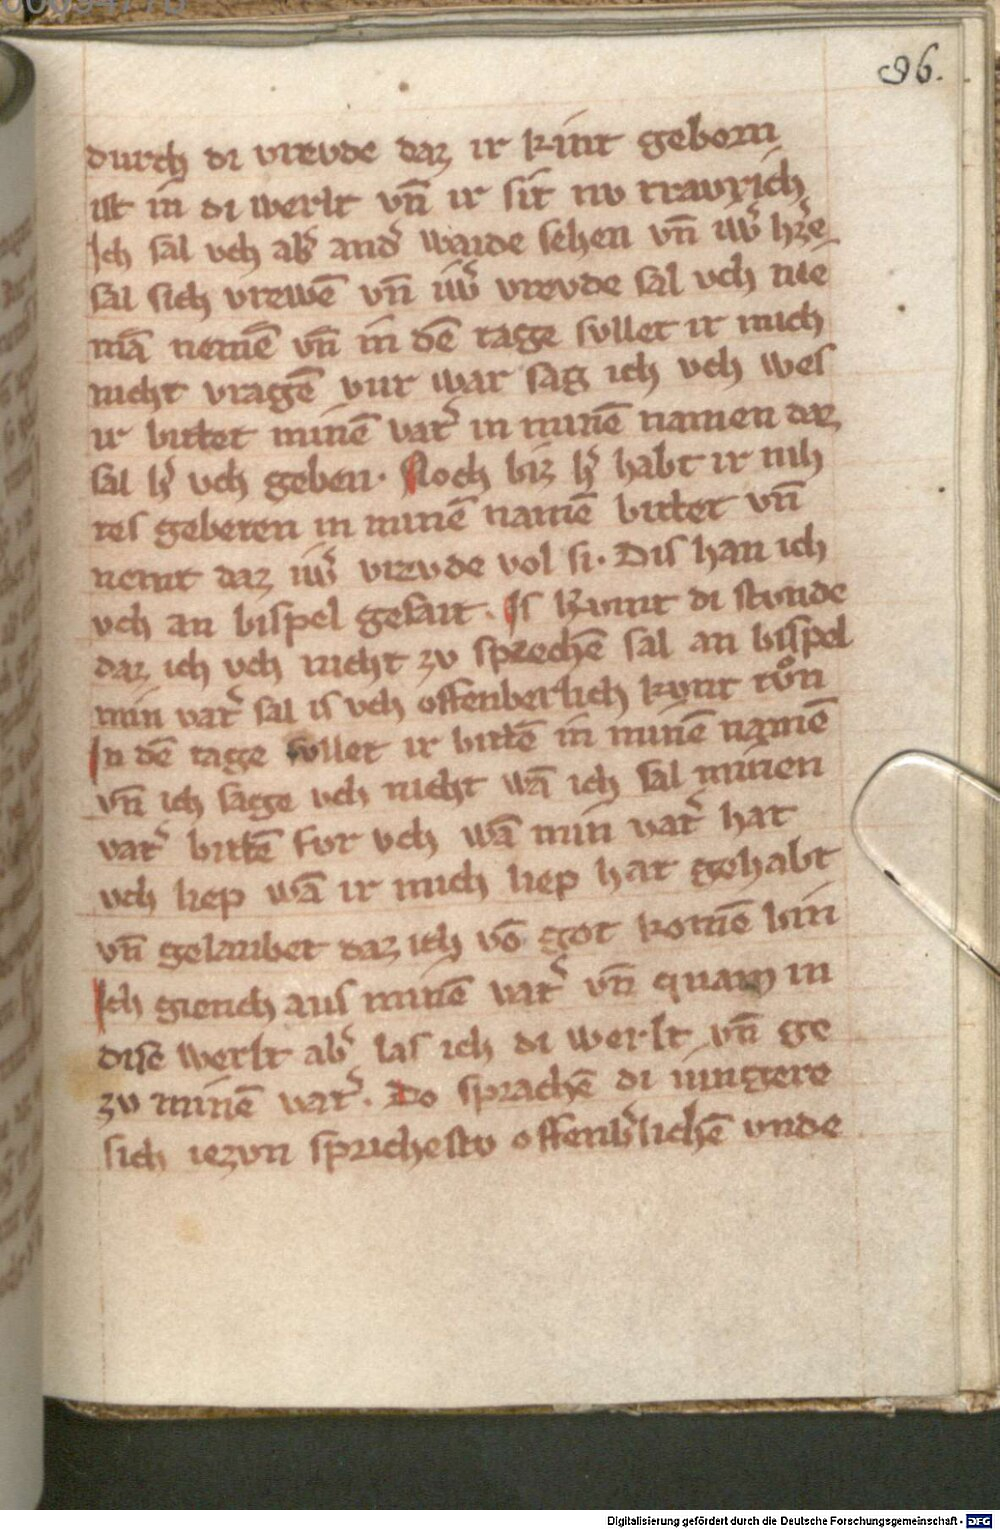 96.
durch di vrevde daz ir kint geborn
ist in di werlt vn̄ ir sit nv travrich
Ich sal vch ab͛ and͛ waide sehen vn̄ iw͛ h͛ze
sal sich vrewē vn̄ iw͛ vrevde sal vch nie
mā nemē vn̄ in dē tage svllet ir mich
nicht vragē vur war sag ich vch wes
ir bittet minē vat͛ in minē namen daz
sal h͛ vch geben. Noch biz h͛ habt ir nih
tes geberen in minē namē bittet vn̄
nemt daz iw͛ vrevde vol si. Dis han ich
vch an bispel gesait. Is kvmt di stvnde
daz ich vch nicht zv sprechē sal an bispel
min vat͛ sal is vch offenberlich kvnt tvͦn
In dē tage svllet ir bittē in minē namē
vn̄ ich sage vch nicht wā ich sal minen
vat͛ bittē fvr vch wā min vat͛ hat
vch liep wā ir mich liep hat gehabt
vn̄ gelaubet daz ich vō got komē bin
Ich giench aus minē vat͛ vn̄ quam in
dise werlt ab͛ las ich di werlt vn̄ ge
zv minē vat͛. Do sprachē di iungere
sich iezvn sprichestv offenb͛lichē vnde
Digitalisierung gefördert durch die Deutsche Forschungsgemeinschaft - DFG